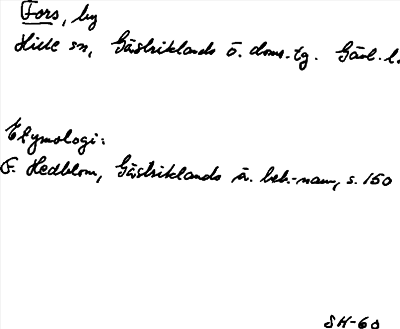 Fors, by
Hille sn, Gästriklands ö. doms.tg. Gävl. l.
Etymologi:
F. Hedblom, Gästriklands ä. beb.namn, s. 150
SH-60